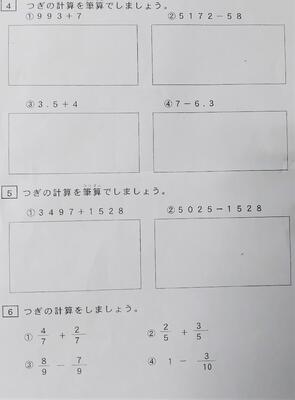 4 つぎの計算を筆算でしましょう。
①993+7 ②5172-58
③3.5+4 ④7-6.3
5 つぎの計算を筆算でしましょう。
①3497+1528 ②5025-1528
6 つぎの計算をしましょう。
① 4/7 + 2/7 ② 2/5 + 3/5
③ 8/9 - 7/9 ④ 1 - 3/10